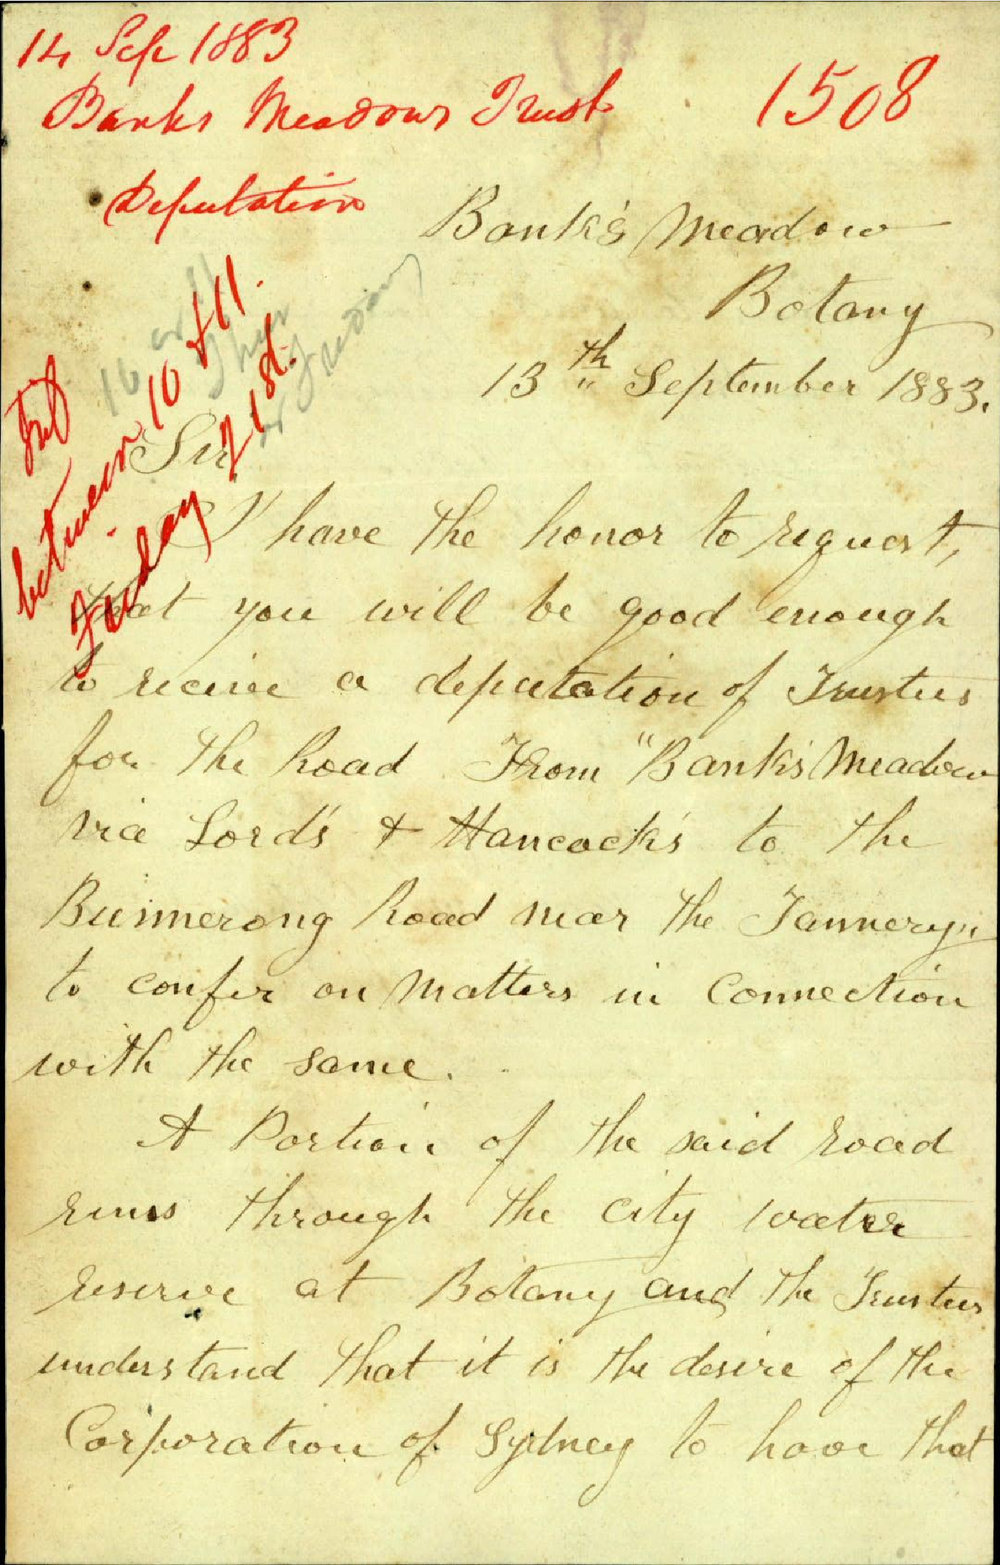 14 Sep 1883
Banks Meadows Trust
1508
Deputation
Bank's Meadow
Botany
13th September 1883.
between 10 & 11.
Friday 21st.
10 or 11
Thur
or
Sir
I have the honor to request,
that you will be good enough
to receive a deputation of Trustees
for the Road From "Bank's Meadow
via Lord's & Hancock's to the
Bumerong Road near the Tannery"
to confer on Matters in Connection
with the same.
A Portion of the said road
runs through the city water
reserve at Botany and the Trustees
understand that it is the desire of the
Corporation of Sydney to have that